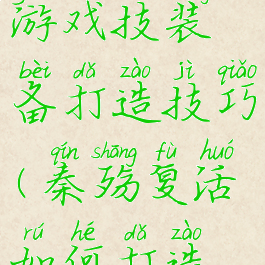 游戏技装
bèi dǎ zào jì qiǎo
备打造技巧
qín shāng fù huó
(秦殇复活
rú hé dǎ zào
如何打造